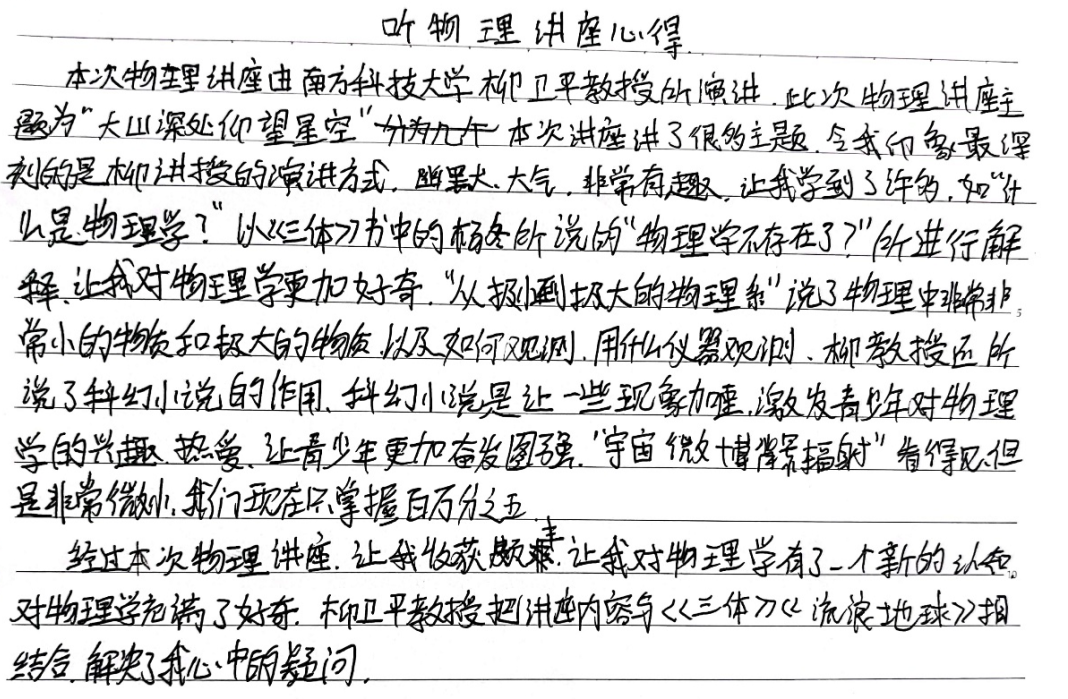 听物理讲座心得
本次物理讲座由南方科技大学柳卫平教授所演讲.此次物理讲座主
题为“大山深处仰望星空”分为几个本次讲座讲了很多主题.令我印象最深
刻的是柳讲授的演讲方式.幽默大.大气.非常有趣.让我学到了许多.如“什
么是物理学?”以《三体》书中的杨冬所说的“物理学不存在了?”所进行解
释.让我对物理学更加好奇.“从极小到极大的物理系”说了物理中非常非
常小的物质和极大的物质.以及如何观测.用什么仪器观测.柳教授还所
说了科幻小说的作用.科幻小说是让一些现象加.激发青少年对物理
学的兴趣.热爱.让青少年更加奋发图强.“宇宙微博背景辐射”看得见.但
是非常微小.我们现在只掌握百万分之五.
经过本次物理讲座.让我收获颇丰.让我对物理学有了一个新的认知.
对物理学充满了好奇.柳卫平教授把讲座内容与《三体》《流浪地球》相
结合.解决了我心中的疑问.